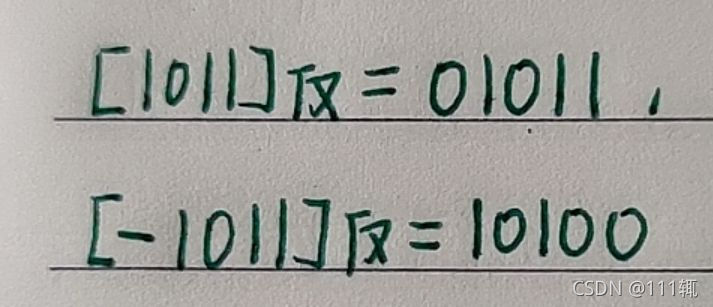 [1011]反=01011,
[-1011]反=10100
CSDN @111辄